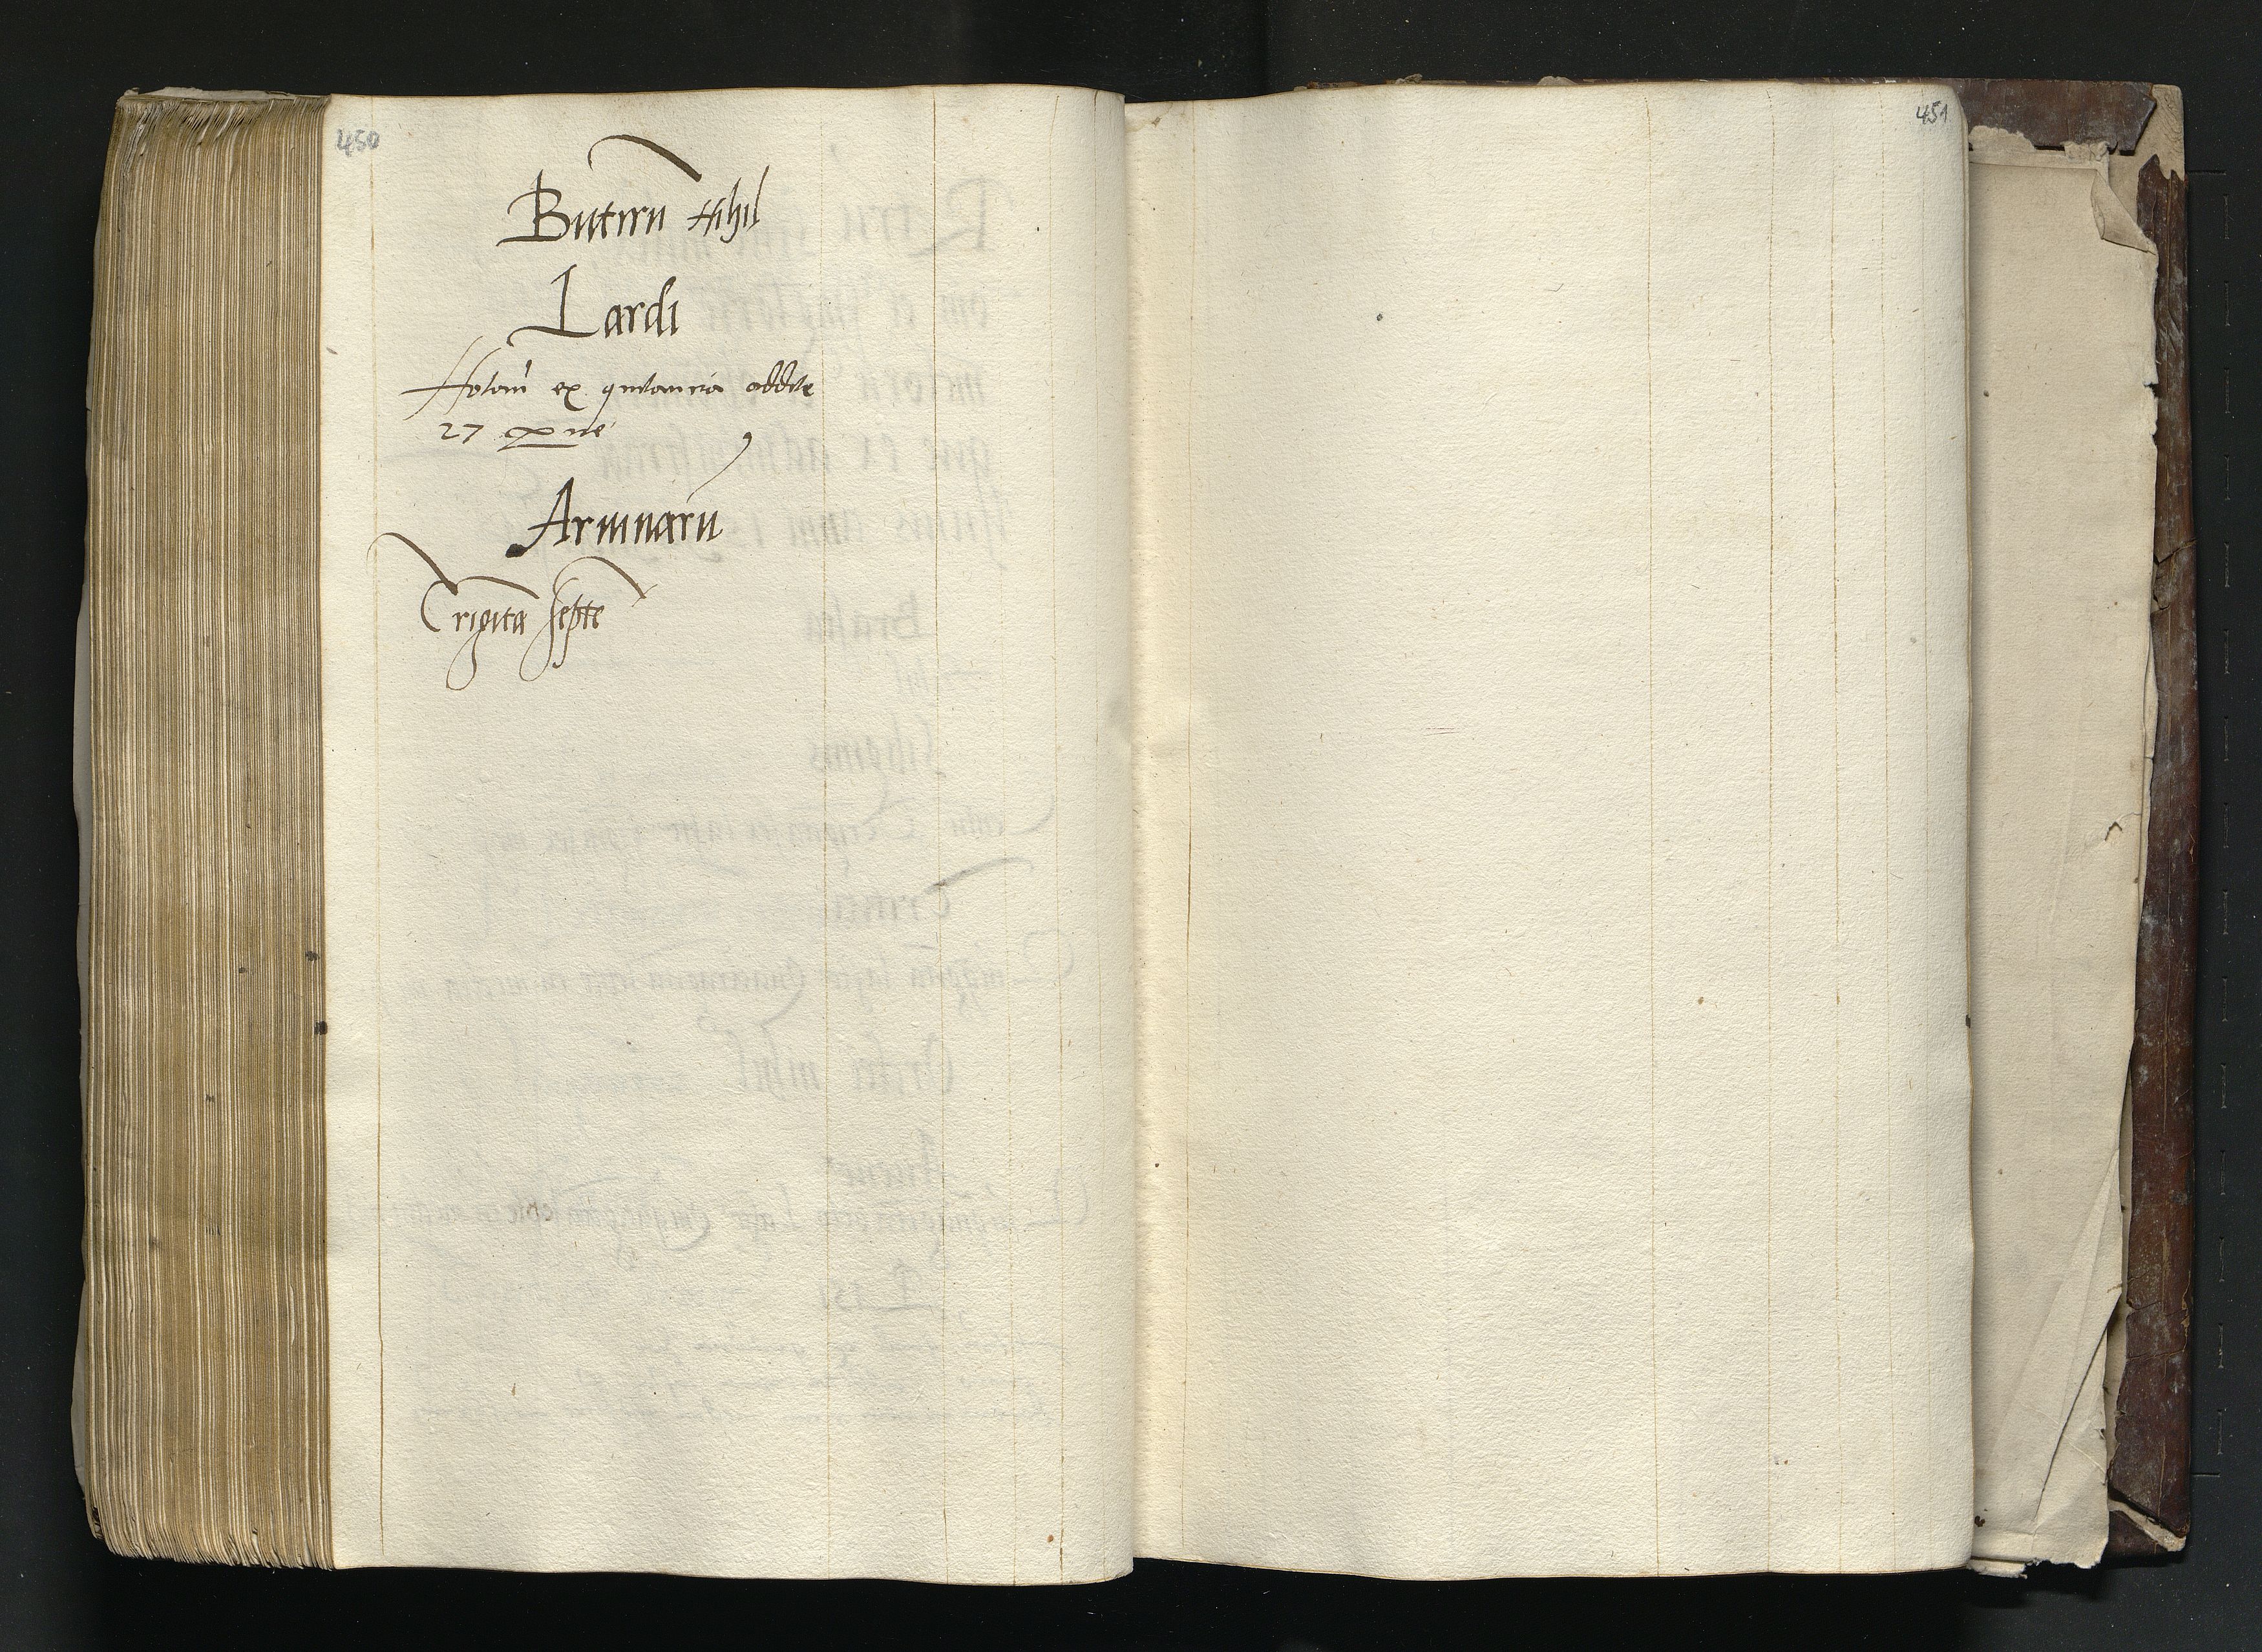 450
Butiru Nihil
Lardi
Notam ex quitancia addite
27
Arminaru
Trigita septe
451